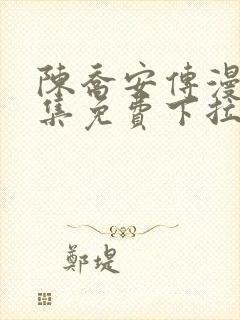 陳喬安傳漫
集免費下拉
鄭堤